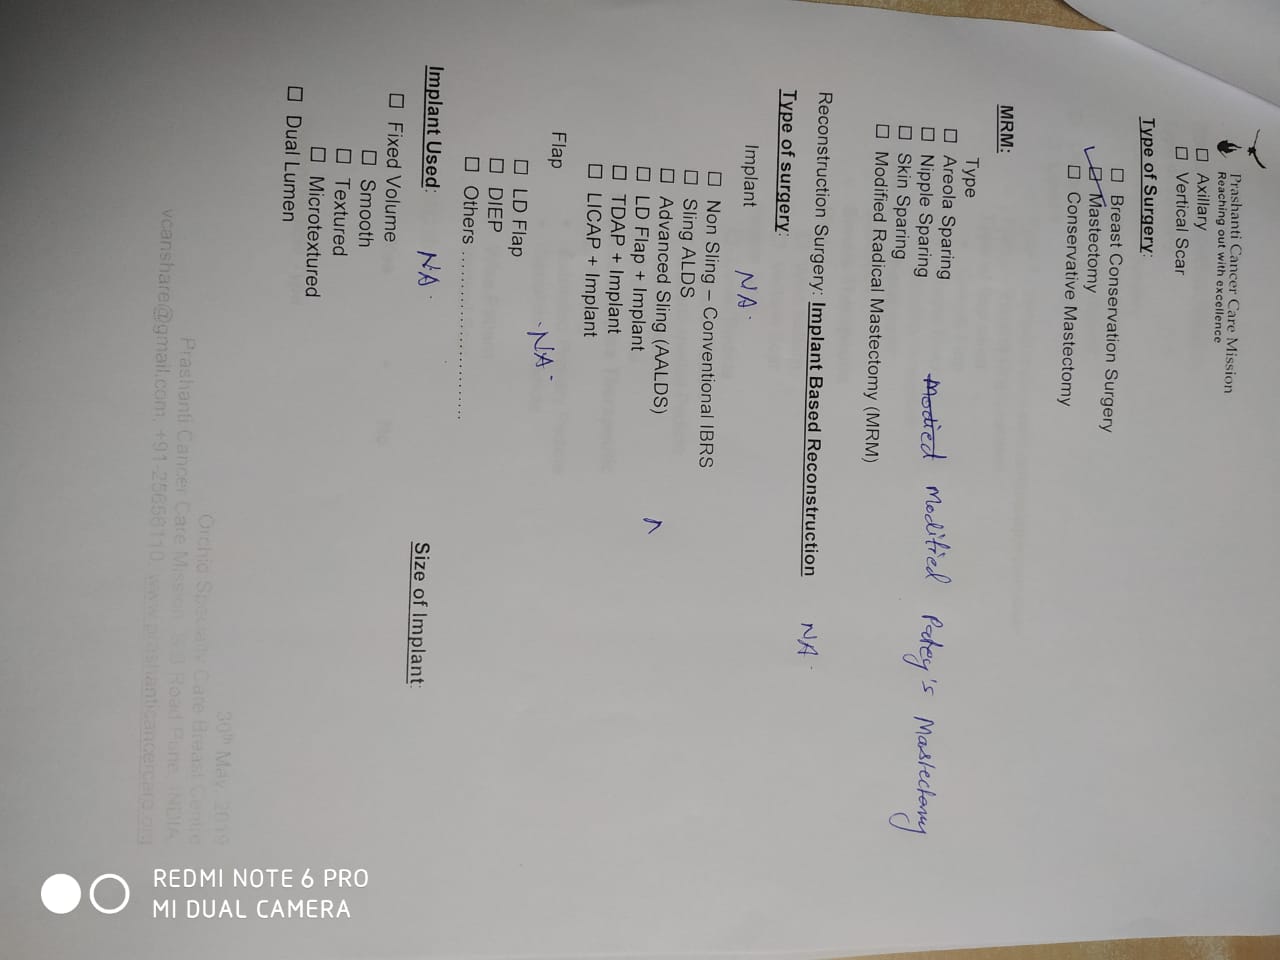 Prashanti Cancer Care Mission
Reaching out with excellence
☐ Axillary
☐ Vertical Scar
Type of Surgery:
☐ Breast Conservation Surgery
☑ Mastectomy
☐ Conservative Mastectomy
MRM:
Type
☐ Areola Sparing
☐ Nipple Sparing Modied Modified Patey's Mastectomy
☐ Skin Sparing
☐ Modified Radical Mastectomy (MRM)
Reconstruction Surgery: Implant Based Reconstruction NA.
Type of surgery:
Implant NA.
☐ Non Sling – Conventional IBRS
☐ Sling ALDS
☐ Advanced Sling (AALDS)
☐ LD Flap + Implant
☐ TDAP + Implant
☐ LICAP + Implant
Flap NA
☐ LD Flap
☐ DIEP
☐ Others ........................
Implant Used: NA. Size of Implant:
☐ Fixed Volume
☐ Smooth
☐ Textured
☐ Microtextured
☐ Dual Lumen
30th May, 2019
Orchid Specialty Care Breast Centre
Prashanti Cancer Care Mission Road Pune, INDIA
vcanshare@gmail.com, +91-25656110, www.prashanticancercare.org
REDMI NOTE 6 PRO
MI DUAL CAMERA